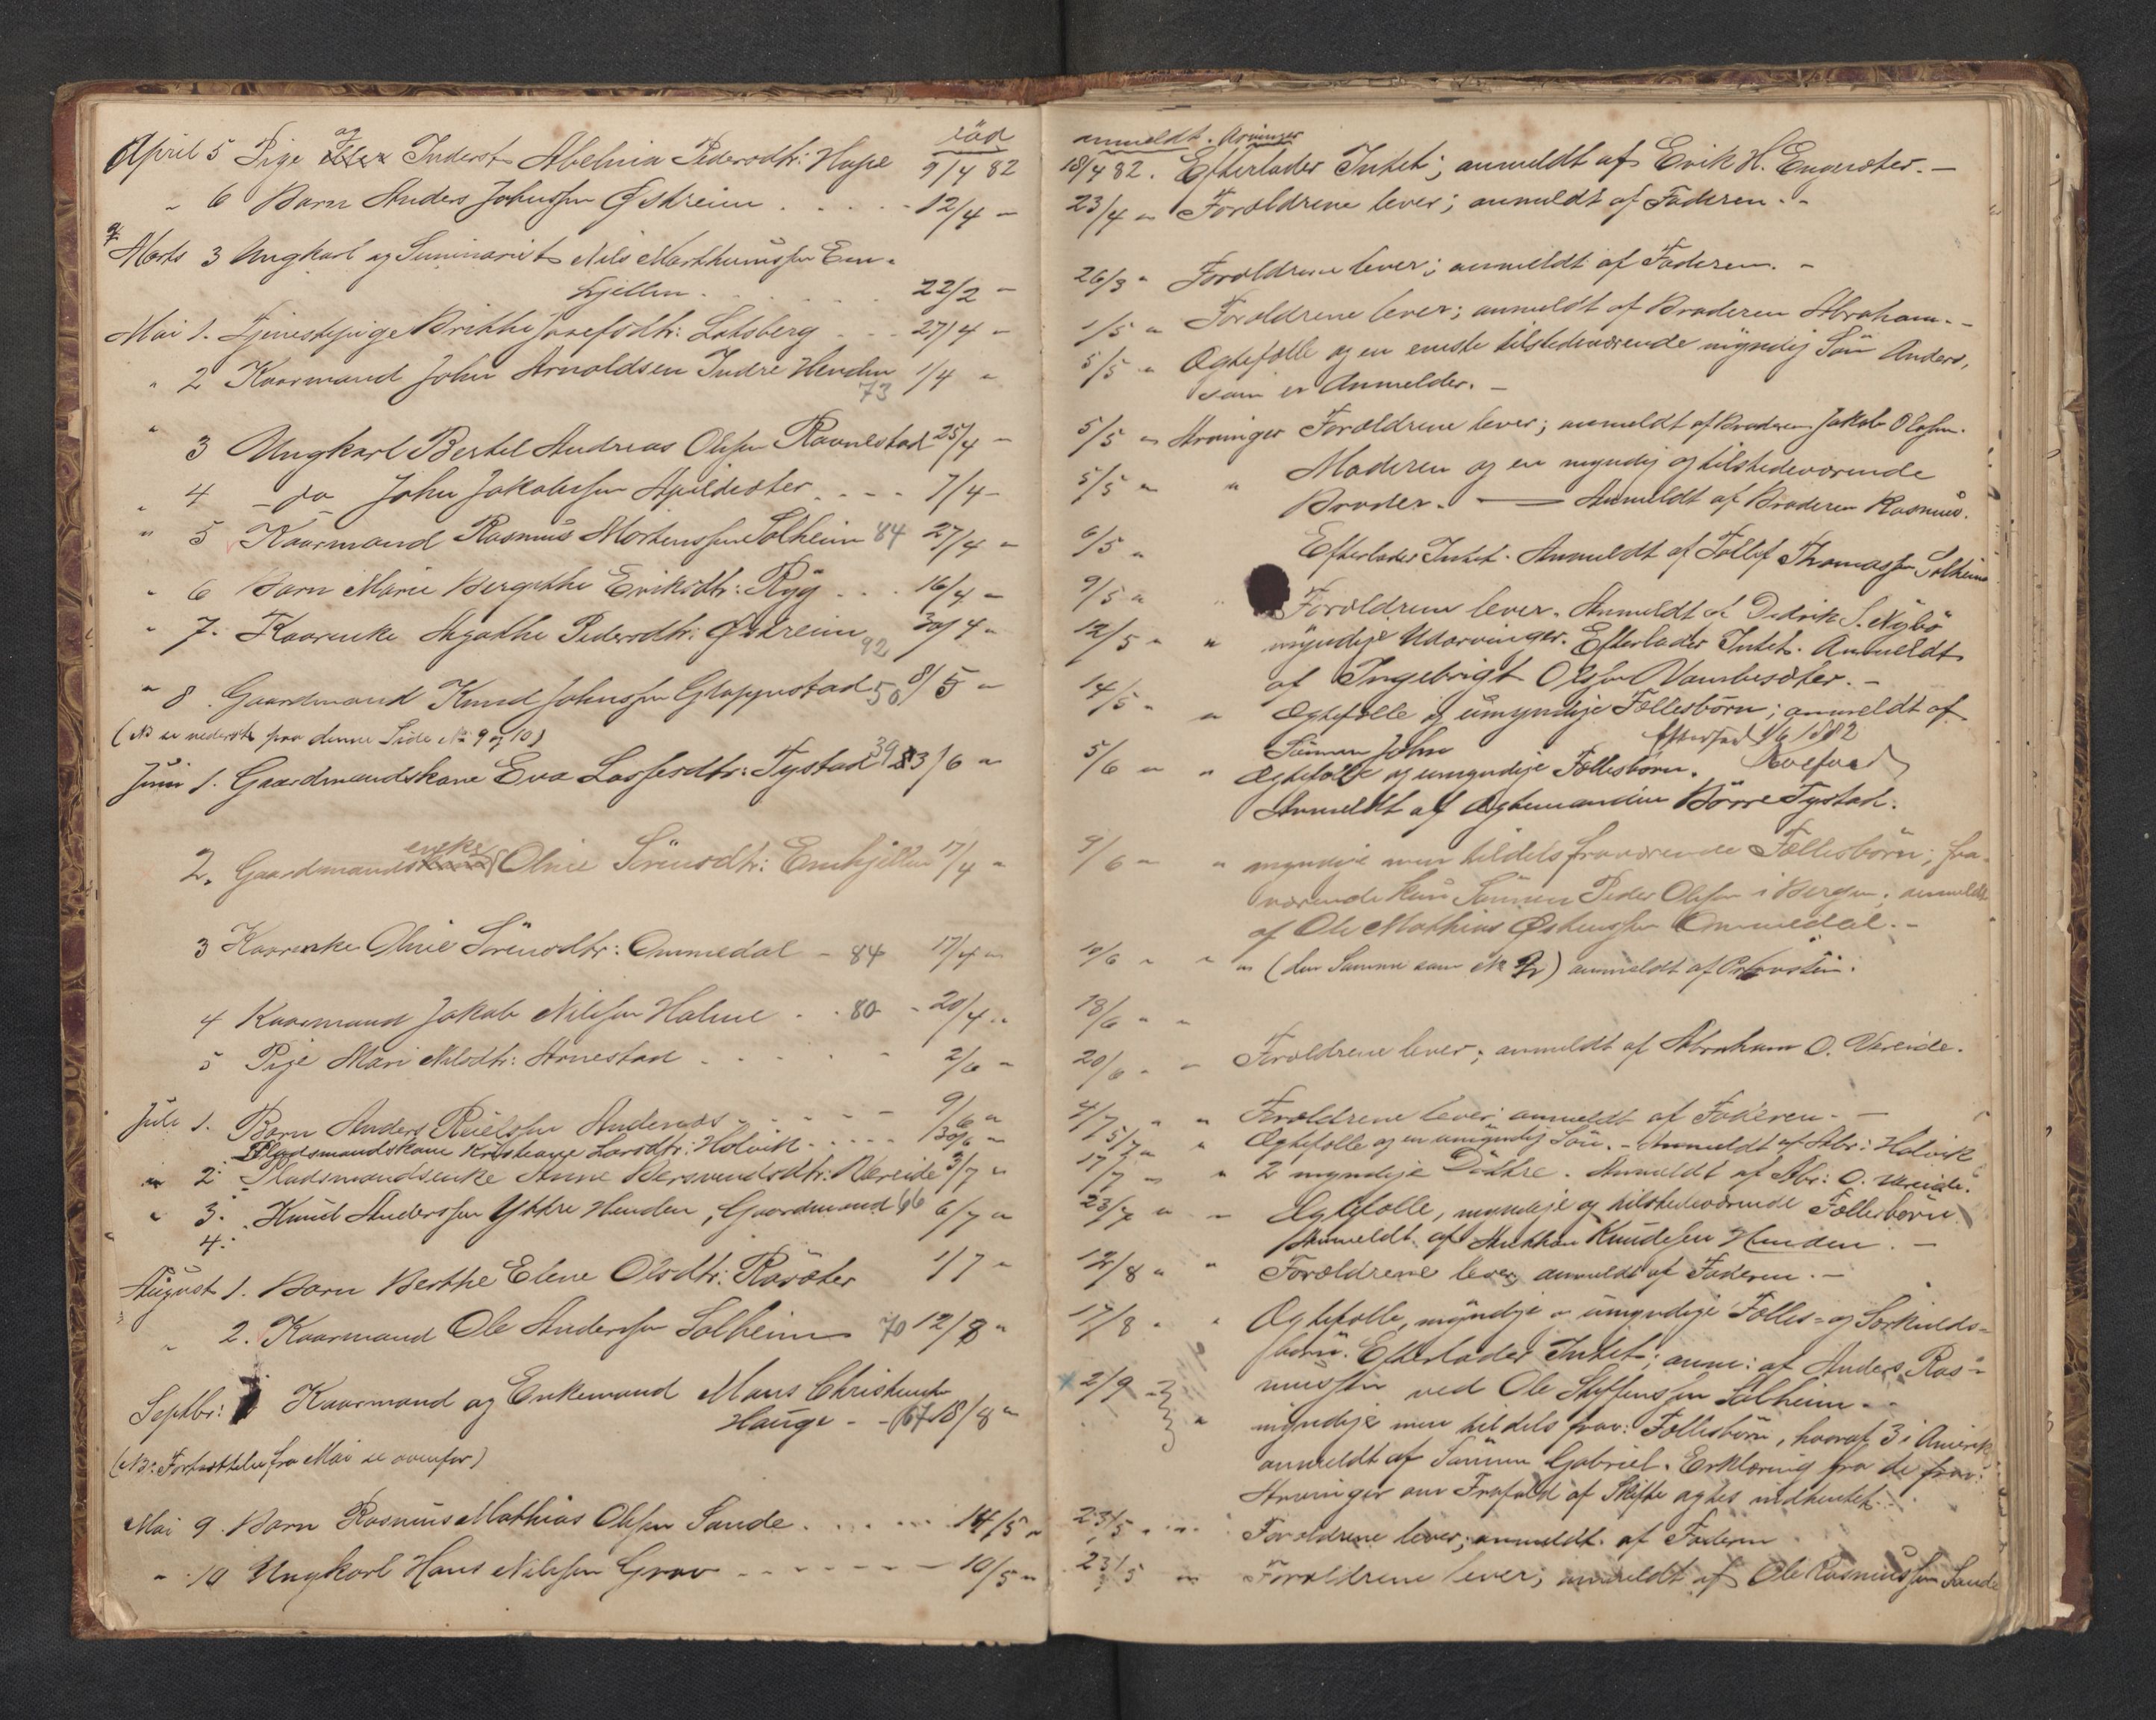 död
April 5 Pige og Inderst Abelnia Pedersdtr: Hope 9/4 82
" 6 Barn Anders Johnssen Østreim 12/4 "
Marts 3 Ungkarl og Seminarist Nils Marthinussen Em-
hjellen 22/2 "
Mai 1. Tjenestepige Brithe Josefsdtr: Lotsberg 27/4 "
" 2 Kaarmand John Arnoldsen Indre Henden 73 1/4 "
" 3 Ungkarl Bertel Andreas Olsen Ravnestad 25/4 "
" 4 do John Jakobssen Apildsæter 7/4 "
" 5 Kaarmand Rasmus Mortenssen Solheim 84 27/4 "
" 6 Barn Marie Bergithe Eriksdtr: Ryg 16/4 "
" 7. Kaarenke Agathe Pedersdtr: Østreim 92 30/4 "
" 8. Gaardmand Knud Johnssen Gloppestad 50 8/5 "
(NB se nederst paa denne Side No 9 og 10)
Juni 1. Gaardmandskone Eva Lassesdtr: Tystad 39 3/6 "
2. Gaardmandsenke Oline Sörensdtr: Emhjellen 17/4 "
3 Kaarenke Oline Sörensdtr: Ommedal - 84 17/4 "
4 Kaarmand Jakob Nilssen Holme 80 20/4 "
5 Pige Mari Nilsdtr: Arnestad 2/6 "
Juli 1. Barn Anders Andenæs 9/6 "
Pladsmandskone Kristiane Larsdtr: Holvik 30/6 "
" 2. Pladsmandsenke Anne Versvendsdtr: Vereide 3/7 "
" 3. Knud Anderssen Yttre Henden, Gaardmand 66 6/7 "
4.
August 1. Barn Berthe Elene Olsdtr: Rösæter 1/7 "
" 2. Kaarmand Ole Anderssen Solheim 70 12/8 "
Septbr: 1 Kaarmand og Enkemand Mons Christensen
Hauge - 67 18/8 "
(NB: Fortsættelse fra Mai se ovenfor)
Mai 9. Barn Rasmus Mathias Olsen Sande 14/5 "
" 10 Ungkarl Hans Nilssen Grov 10/5 "
anmeldt. Arvinger
18/4 82. Efterlader Intet; anmeldt af Erik H. Engesæter. -
23/4 " Forældrene lever; anmeldt af Faderen. -
26/3 " Forældrene lever; anmeldt af Faderen. -
1/5 " Forældrene lever; anmeldt af Broderen Abraham. -
5/5 " Ægtefælle og en eneste tilstedeværende myndig Sön Anders,
som er Anmelder. -
5/5 " Arvinger Forældrene lever; anmeldt af Broderen Jakob Olsen.
5/5 " " Moderen og en myndig og tilstedeværende
Broder. - Anmeldt af Broderen Rasmus.
6/5 " Efterlader Intet. Anmeldt af Tollef Thomassen Solheim
9/5 " Forældrene lever. Anmeldt af Didrik S. Nybö
12/5 " " myndige Udarvinger. Efterlader Intet. Anmeldt
af Ingebrigt Olsen Vambesæter. -
14/5 " " Ægtefælle og umyndige Fællesbörn; anmeldt af
Sönnen John
5/6 " " Ægtefælle og umyndige Fællesbörn.
Anmeldt af Ægtemanden Börre Tystad.
9/6 " " myndige men tildels fraværende Fællesbörn; fra-
værende kun Sönnen Peder Olsen i Bergen; anmeldt
af Ole Mathias Østenssen Ommedal. -
10/6 " " " (den Samme som No 2) anmeldt af
18/6 " "
20/6 " " Forældrene lever; anmeldt af Abraham O. Vereide.
4/7 " " Forældrene lever; anmeldt af Faderen. -
15/7 " " Ægtefælle og en umyndig Sön. - Anmeldt af Abr: Holvik
17/7 " " 2 myndige Döttre. Anmeldt af Abr: O. Vereide.
23/7 " " Ægtefælle, myndige og tilstedeværende Fællesbörn
Anmeldt af Knudssen Henden. -
12/8 " " Forældrene lever, anmeldt af Faderen. -
17/8 " " Ægtefælle, myndige og umyndige Fælles- og Særkulds-
börn. Efterlader Intet; anm: af Anders Ras-
mussen ved Ole Steffenssen Solheim. -
2/9 " " myndige men tildels frav: Fællesbörn, hvoraf 3 i Amerika
anmeldt af Sönnen Gabriel. Erklæring fra de frav:
Arvinger om Frafald af Skifte agtes indhentet.
23/5 " " Forældrene lever; anmeldt af Faderen
23/5 " Forældrene lever; anmeldt af Ole Rasmussen Sande